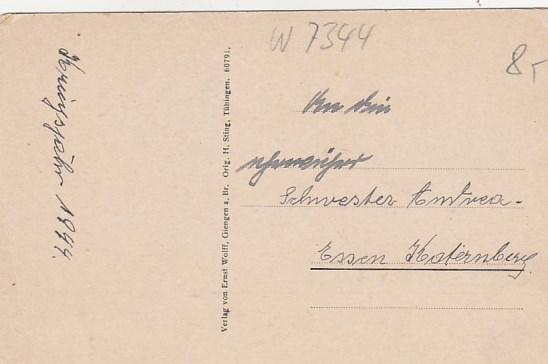 W 7344
8,-
Kriegsjahr 1944.
Verlag von Ernst Wolff, Giengen a. Br. Orig. H. Sting, Tübingen. 60791.
An die
ehrwürdige
Schwester Andrea-
Essen Katernberg